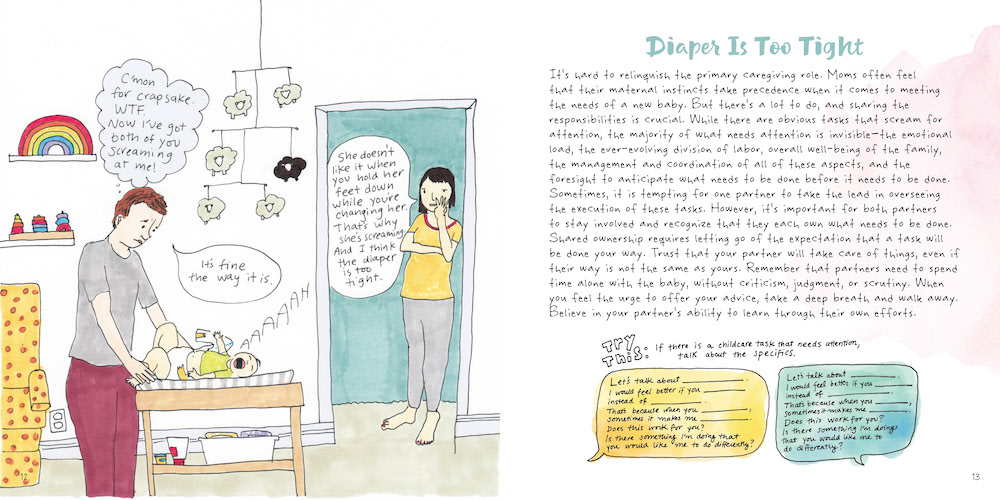 C'mon
for crapsake.
WTF.
Now I've got
both of you
screaming
at me!
She doesn't
like it when
you hold her
feet down
while you're
changing her.
That's why
she's screaming.
And I think
the diaper
is too
tight.
It's fine
the way it is.
AAAAAH
12
Diaper Is Too Tight
It's hard to relinquish the primary caregiving role. Moms often feel
that their maternal instincts take precedence when it comes to meeting
the needs of a new baby. But there's a lot to do, and sharing the
responsibilities is crucial. While there are obvious tasks that scream for
attention, the majority of what needs attention is invisible—the emotional
load, the ever-evolving division of labor, overall well-being of the family,
the management and coordination of all of these aspects, and the
foresight to anticipate what needs to be done before it needs to be done.
Sometimes, it is tempting for one partner to take the lead in overseeing
the execution of these tasks. However, it's important for both partners
to stay involved and recognize that they each own what needs to be done.
Shared ownership requires letting go of the expectation that a task will
be done your way. Trust that your partner will take care of things, even if
their way is not the same as yours. Remember that partners need to spend
time alone with the baby, without criticism, judgment, or scrutiny. When
you feel the urge to offer your advice, take a deep breath and walk away.
Believe in your partner's ability to learn through their own efforts.
TRY
THIS: If there is a childcare task that needs attention,
talk about the specifics.
Let's talk about ________.
I would feel better if you ________
instead of ________.
That's because when you ________,
sometimes it makes me ________.
Does this work for you?
Is there something I'm doing that
you would like me to do differently?
Let's talk about ________.
I would feel better if you ________
instead of ________.
That's because when you ________,
sometimes it makes me ________.
Does this work for you?
Is there something I'm doing
that you would like me to
do differently?
13